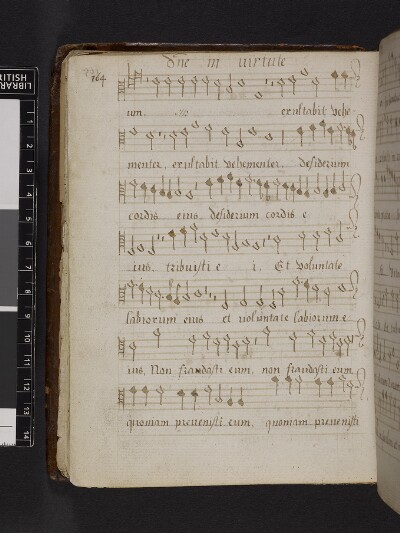 Dne in virtute
164
um. exultabit vehe-
menter. exultabit vehementer. desiderium
cordis eius desiderium cordis e
ius. tribuisti e i. Et voluntate
labiorum eius et voluntate labiorum e
ius. Non fraudasti eum. non fraudasti eum
quoniam prevenisti eum. quoniam prevenisti
1
2
3
4
5
6
7
8
9
10
11
12
13
14